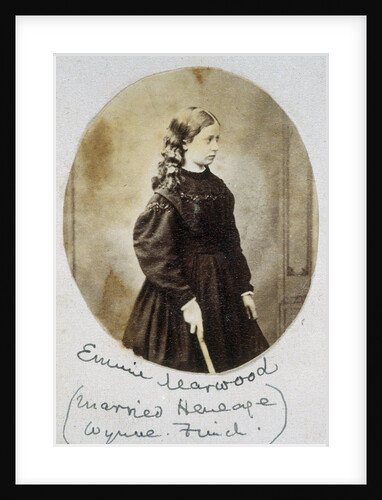 Emmie Marwood
(Married Heneage
Wynne. Finch.)